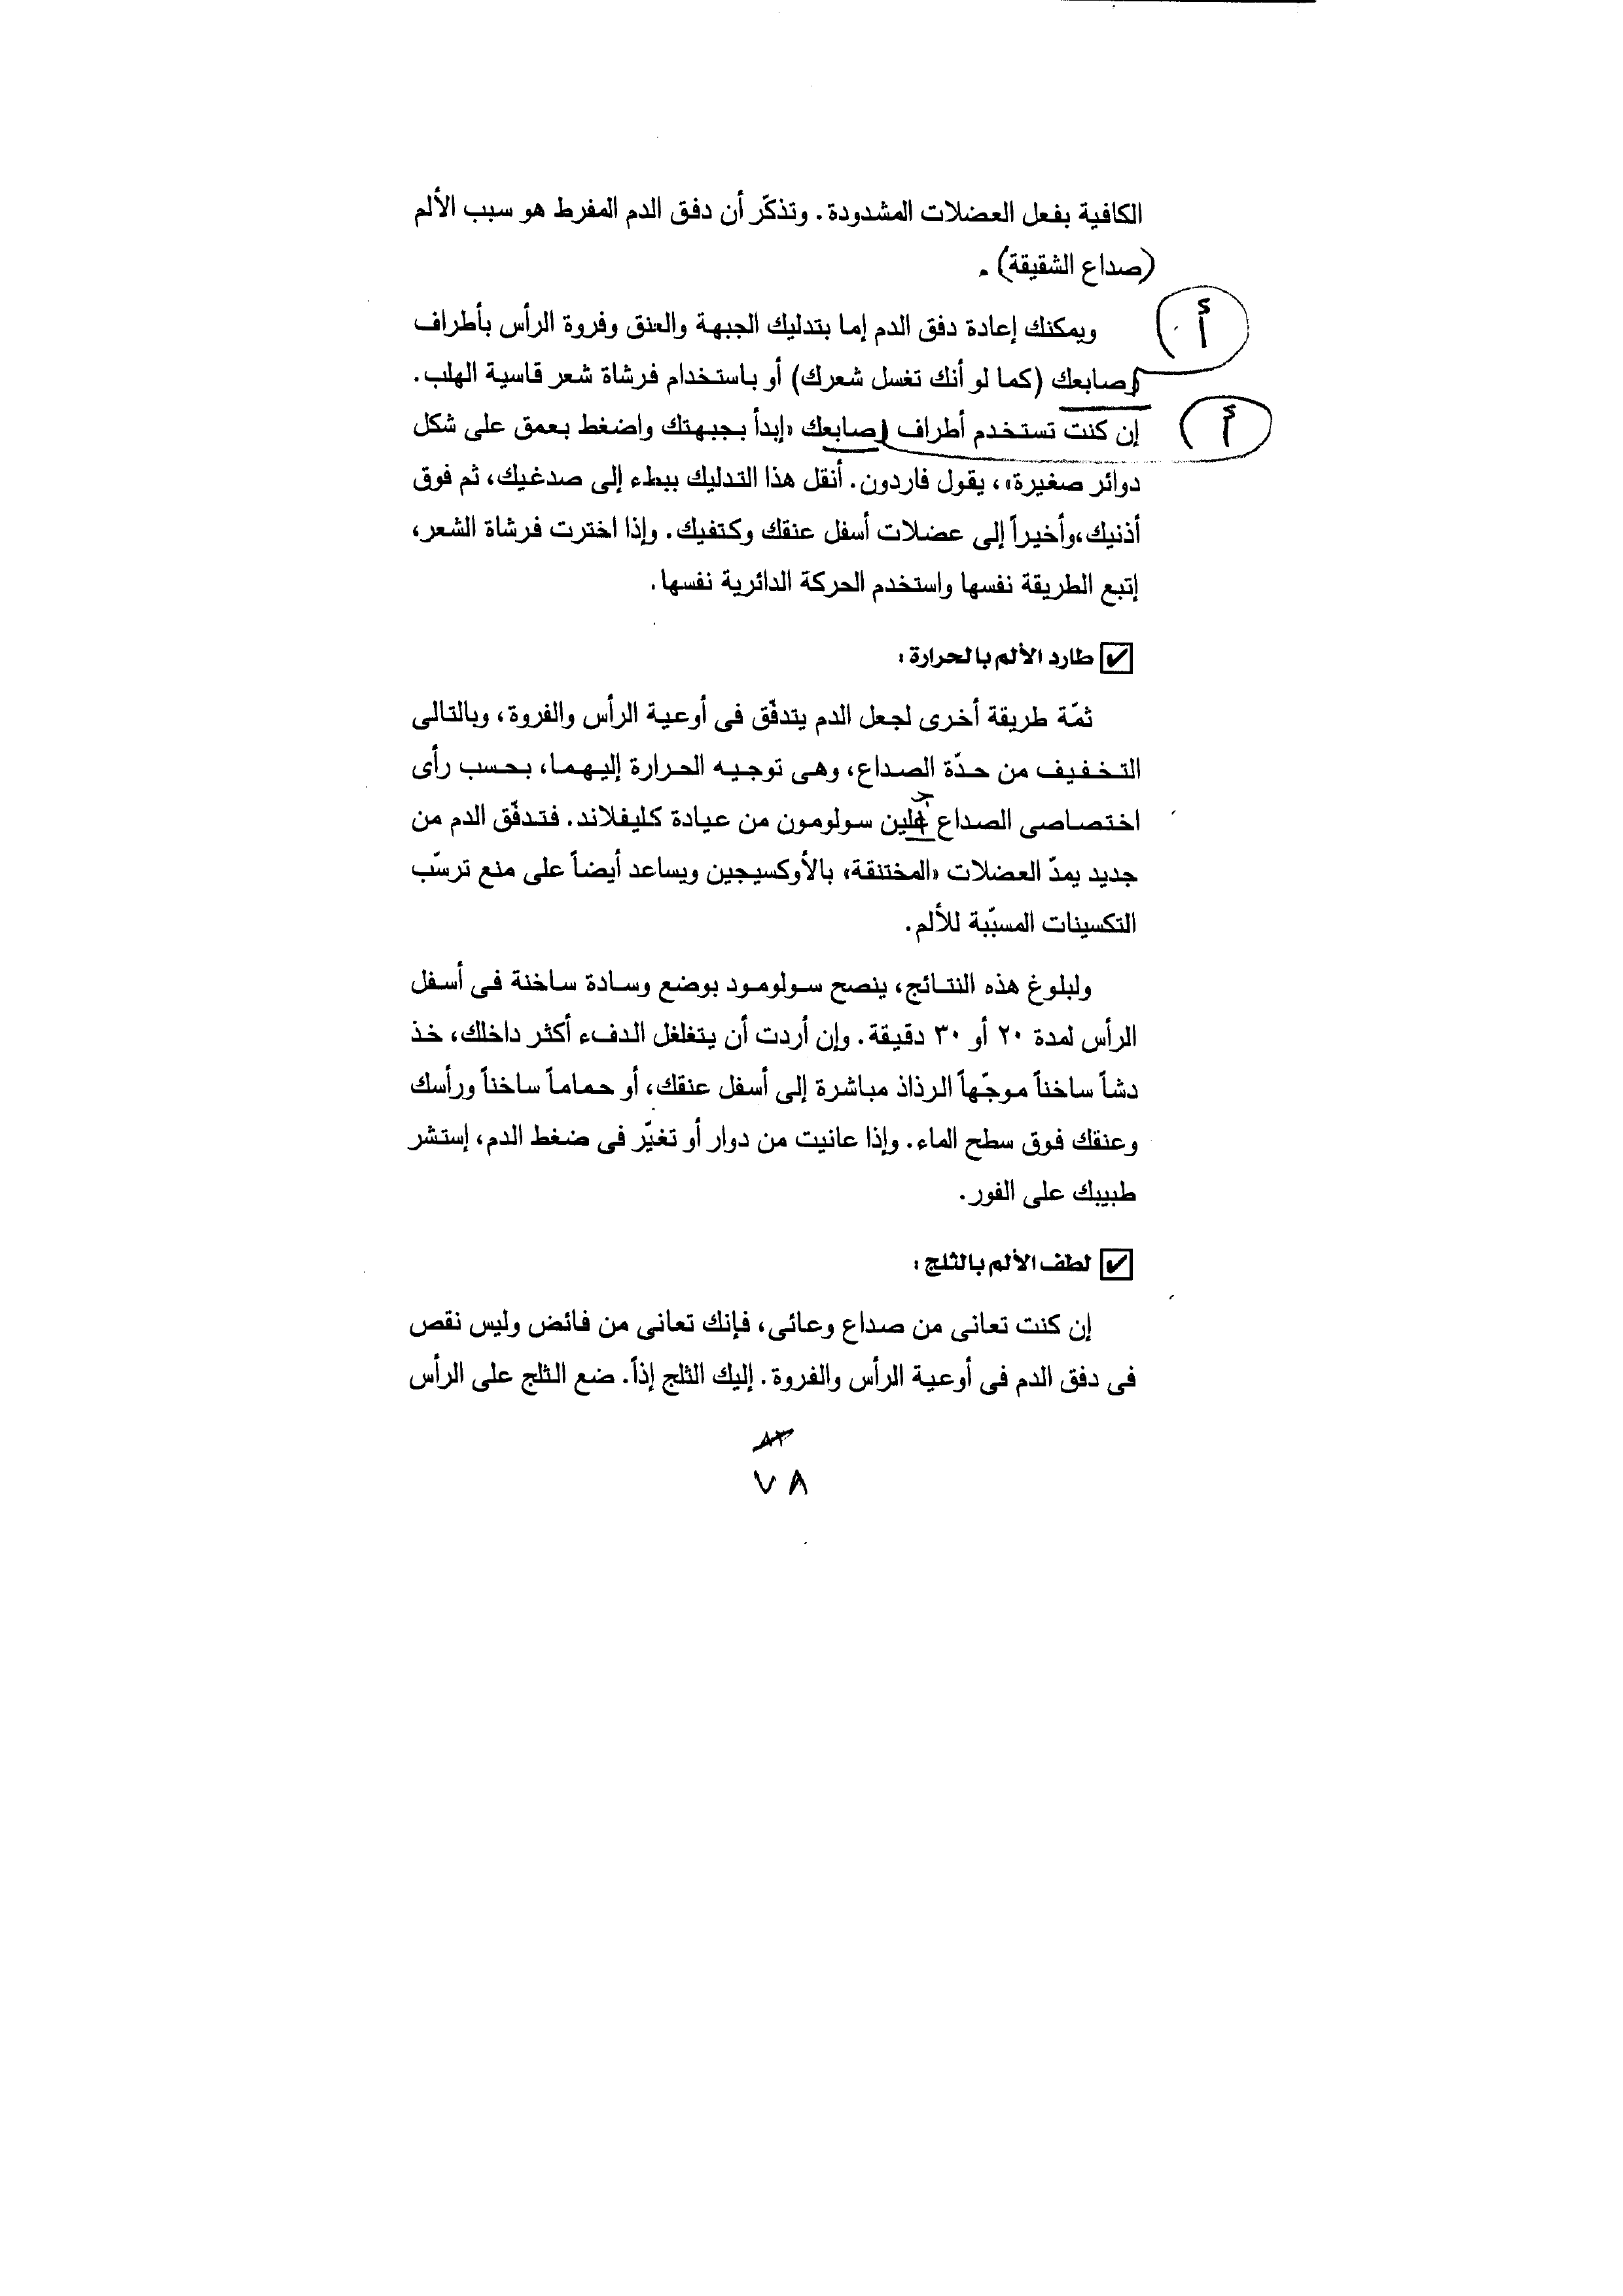 الكافية بفعل العضلات المشدودة. وتذكّر أن دفق الدم المفرط هو سبب الألم
(صداع الشقيقة).
أ
ويمكنك إعادة دفق الدم إما بتدليك الجبهة والعنق وفروة الرأس بأطراف
صابعك (كما لو أنك تغسل شعرك) أو باستخدام فرشاة شعر قاسية الهلب.
أ
إن كنت تستخدم أطراف صابعك «إبدأ بجبهتك واضغط بعمق على شكل
دوائر صغيرة»، يقول فاردون. أنقل هذا التدليك ببطء إلى صدغيك، ثم فوق
أذنيك،وأخيراً إلى عضلات أسفل عنقك وكتفيك. وإذا اخترت فرشاة الشعر،
إتبع الطريقة نفسها واستخدم الحركة الدائرية نفسها.
☑ طارد الألم بالحرارة:
ثمّة طريقة أخرى لجعل الدم يتدفّق فى أوعية الرأس والفروة، وبالتالى
التخفيف من حدّة الصداع، وهى توجيه الحرارة إليهما، بحسب رأى
اختصاصى الصداع سولومون من عيادة كليفلاند. فتدفّق الدم من
جديد يمدّ العضلات «المختنقة» بالأوكسيجين ويساعد أيضاً على منع ترسّب
التكسينات المسبّبة للألم.
ولبلوغ هذه النتائج، ينصح سولومود بوضع وسادة ساخنة فى أسفل
الرأس لمدة ٢٠ أو ٣٠ دقيقة. وإن أردت أن يتغلغل الدفء أكثر داخلك، خذ
دشاً ساخناً موجّهاً الرذاذ مباشرة إلى أسفل عنقك، أو حماماً ساخناً ورأسك
وعنقك فوق سطح الماء. وإذا عانيت من دوار أو تغيّر فى ضغط الدم، إستشر
طبيبك على الفور.
☑ لطف الألم بالثلج:
إن كنت تعانى من صداع وعائى، فإنك تعانى من فائض وليس نقص
فى دفق الدم فى أوعية الرأس والفروة. إليك الثلج إذاً. ضع الثلج على الرأس
٧٨